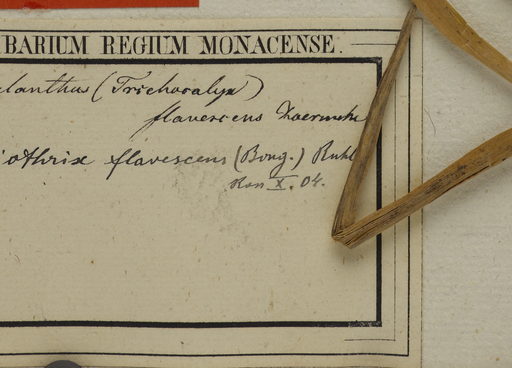 BARIUM REGIUM MONACENSE.
elanthus (Trichocalyx)
flavescens Koernicke
iothrix flavescens (Bong.) Ruhl
X. 04.